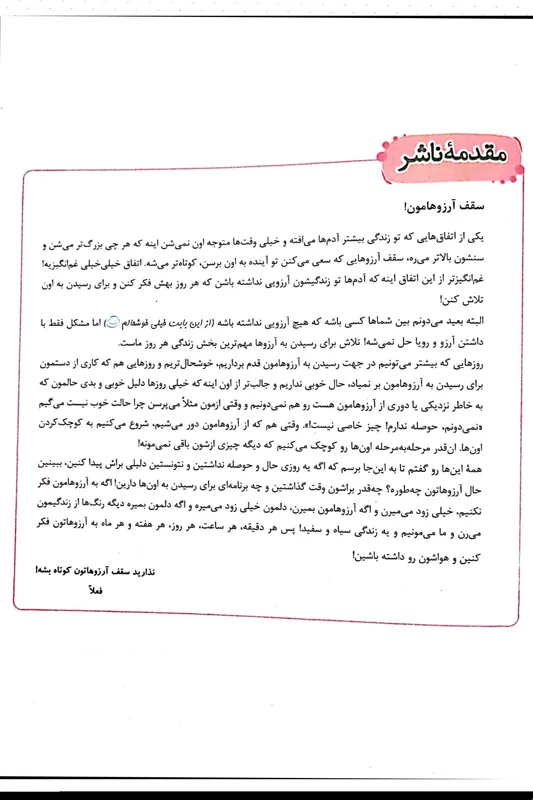 مقدمهٔ ناشر
سقف آرزوهامون!
یکی از اتفاق‌هایی که تو زندگی بیشتر آدم‌ها می‌افته و خیلی وقت‌ها متوجه اون نمی‌شن اینه که هر چی بزرگ‌تر می‌شن و
سنشون بالاتر می‌ره، سقف آرزوهایی که سعی می‌کنن تو آینده به اون برسن، کوتاه‌تر می‌شه. اتفاق خیلی‌خیلی غم‌انگیزیه!
غم‌انگیزتر از این اتفاق اینه که آدم‌ها تو زندگیشون آرزویی نداشته باشن که هر روز بهش فکر کنن و برای رسیدن به اون
تلاش کنن!
البته بعید می‌دونم بین شماها کسی باشه که هیچ آرزویی نداشته باشه (از این بابت خیلی خوشحالم) اما مشکل فقط با
داشتن آرزو و رویا حل نمی‌شه! تلاش برای رسیدن به آرزوها مهم‌ترین بخش زندگی هر روز ماست.
روزهایی که بیشتر می‌تونیم در جهت رسیدن به آرزوهامون قدم برداریم، خوشحال‌تریم و روزهایی هم که کاری از دستمون
برای رسیدن به آرزوهامون بر نمیاد، حال خوبی نداریم و جالب‌تر از اون اینه که خیلی روزها دلیل خوبی و بدی حالمون که
به خاطر نزدیکی یا دوری از آرزوهامون هست رو هم نمی‌دونیم و وقتی ازمون مثلاً می‌پرسن چرا حالت خوب نیست می‌گیم
«نمی‌دونم، حوصله ندارم! چیز خاصی نیست!». وقتی هم که از آرزوهامون دور می‌شیم، شروع می‌کنیم به کوچک‌کردن
اون‌ها. ان‌قدر مرحله‌به‌مرحله اون‌ها رو کوچک می‌کنیم که دیگه چیزی ازشون باقی نمی‌مونه!
همهٔ این‌ها رو گفتم تا به این‌جا برسم که اگه یه روزی حال و حوصله نداشتین و نتونستین دلیلی براش پیدا کنین، ببینین
حال آرزوهاتون چه‌طوره؟ چه‌قدر براشون وقت گذاشتین و چه برنامه‌ای برای رسیدن به اون‌ها دارین! اگه به آرزوهامون فکر
نکنیم، خیلی زود می‌میرن و اگه آرزوهامون بمیرن، دلمون خیلی زود می‌میره و اگه دلمون بمیره دیگه رنگ‌ها از زندگیمون
می‌رن و ما می‌مونیم و یه زندگی سیاه و سفید! پس هر دقیقه، هر ساعت، هر روز، هر هفته و هر ماه به آرزوهاتون فکر
کنین و هواشون رو داشته باشین!
نذارید سقف آرزوهاتون کوتاه بشه!
فعلاً